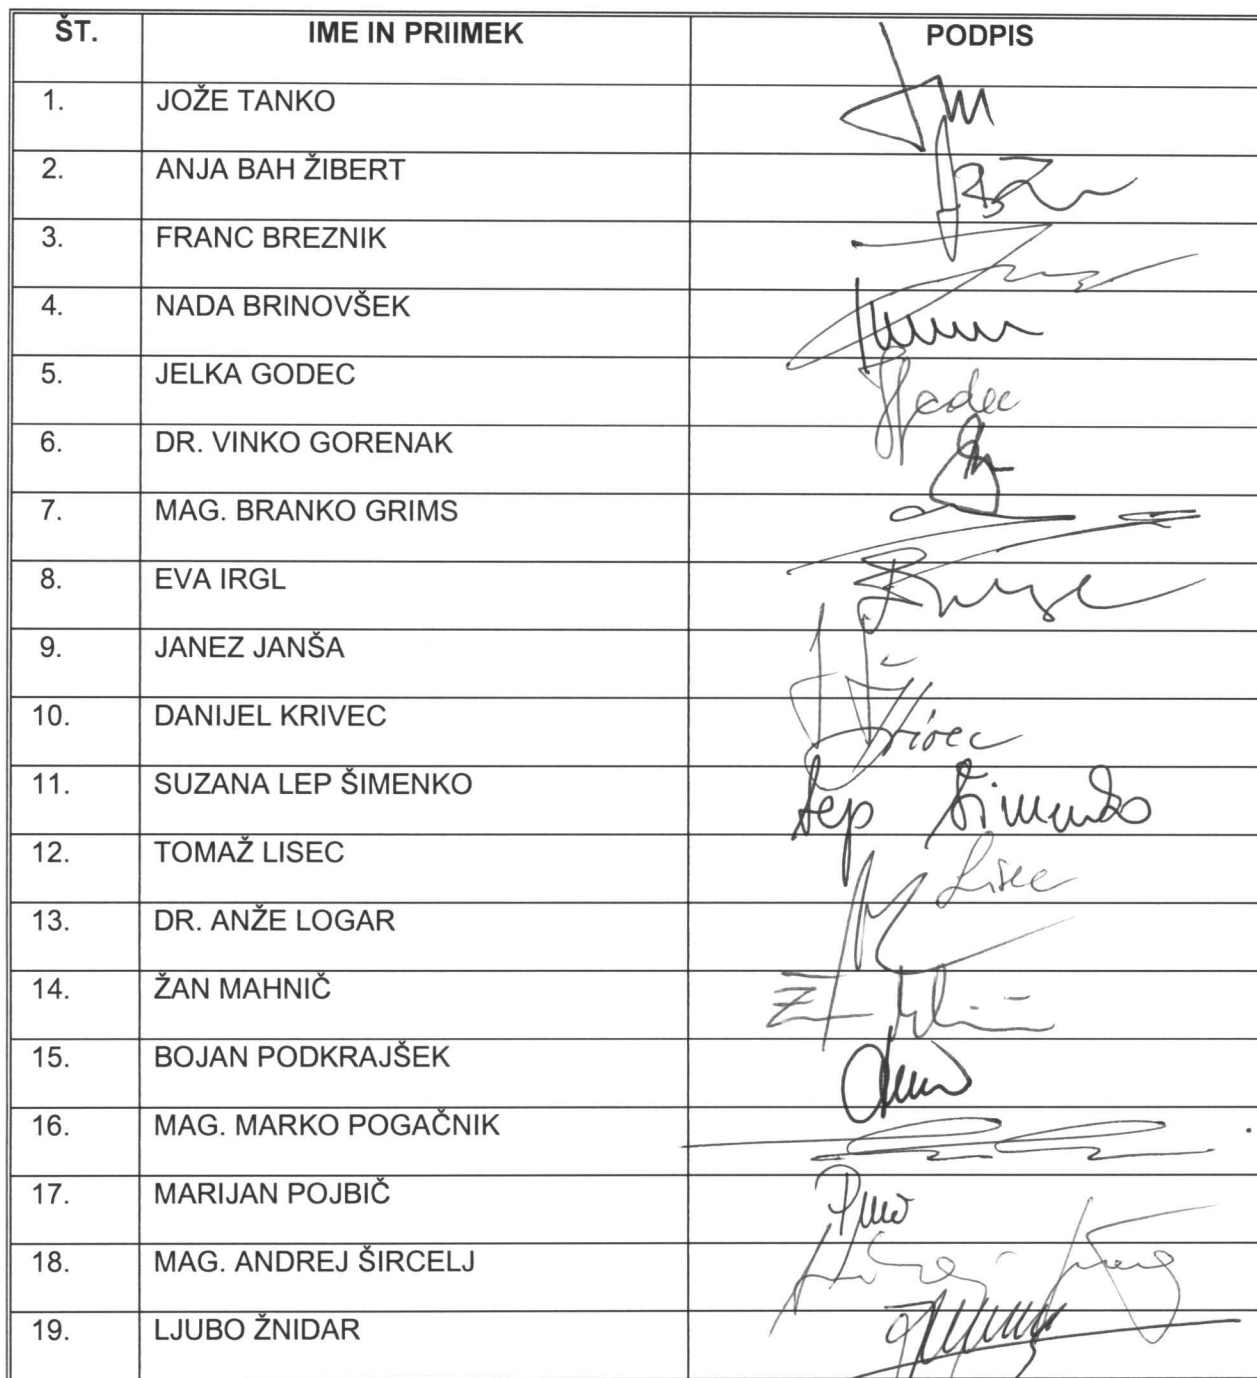 ŠT. IME IN PRIIMEK PODPIS
1. JOŽE TANKO
2. ANJA BAH ŽIBERT
3. FRANC BREZNIK
4. NADA BRINOVŠEK
5. JELKA GODEC Godec
6. DR. VINKO GORENAK
7. MAG. BRANKO GRIMS
8. EVA IRGL
9. JANEZ JANŠA
10. DANIJEL KRIVEC Krivec
11. SUZANA LEP ŠIMENKO Lep Šimenko
12. TOMAŽ LISEC Lisec
13. DR. ANŽE LOGAR
14. ŽAN MAHNIČ
15. BOJAN PODKRAJŠEK
16. MAG. MARKO POGAČNIK
17. MARIJAN POJBIČ
18. MAG. ANDREJ ŠIRCELJ
19. LJUBO ŽNIDAR